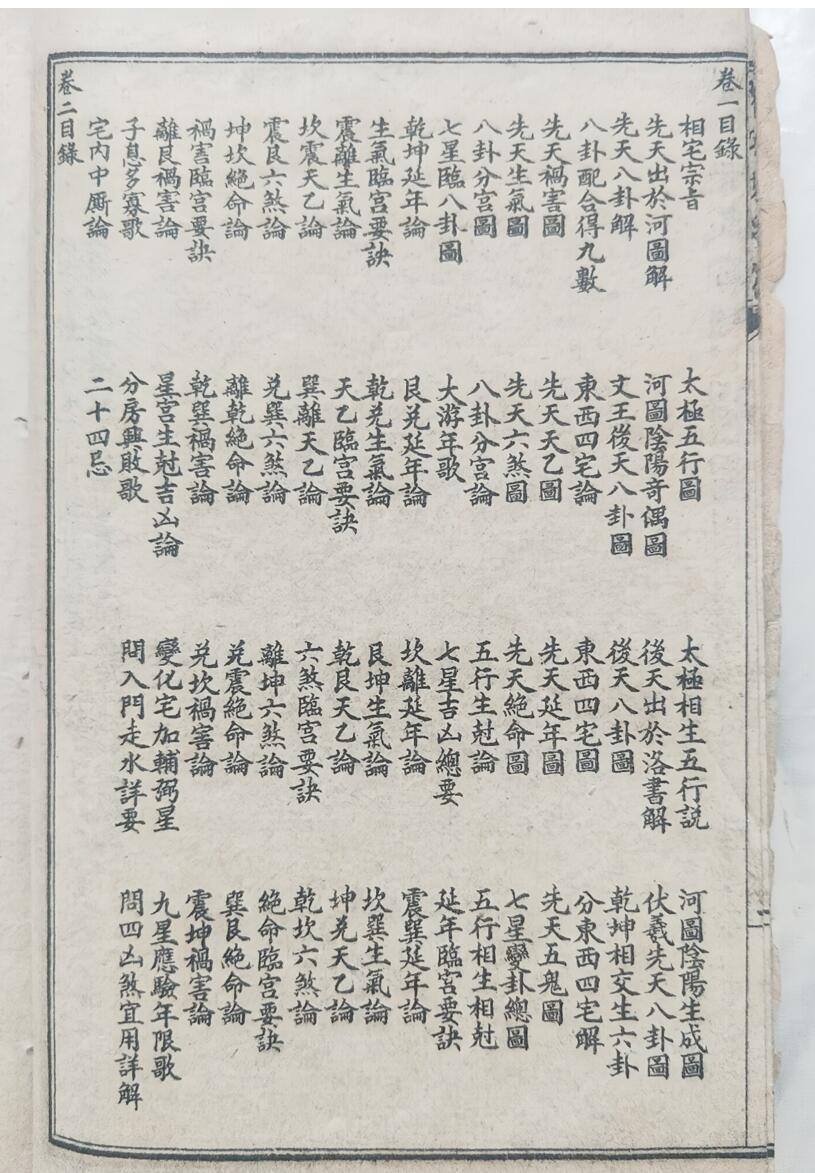 卷一目錄
相宅宗旨 太極五行圖 太極相生五行説 河圖陰陽生成圖
先天出於河圖解 河圖陰陽奇偶圖 後天出於洛書解 伏羲先天八卦圖
先天八卦解 文王後天八卦圖 後天八卦圖 乾坤相交生六卦
八卦配合得九數 東西四宅論 東西四宅圖 分東西四宅解
先天禍害圖 先天天乙圖 先天延年圖 先天五鬼圖
先天生氣圖 先天六煞圖 先天絕命圖 七星變卦總圖
八卦分宮圖 八卦分宮論 五行生尅論 五行相生相尅
七星臨八卦圖 大游年歌 七星吉凶總要 延年臨宮要訣
乾坤延年論 艮兑延年論 坎離延年論 震巽延年論
生氣臨宮要訣 乾兑生氣論 艮坤生氣論 坎巽生氣論
震離生氣論 天乙臨宮要訣 乾艮天乙論 坤兑天乙論
坎震天乙論 巽離天乙論 六煞臨宮要訣 乾坎六煞論
震艮六煞論 兑巽六煞論 離坤六煞論 絕命臨宮要訣
坤坎絕命論 離乾絕命論 兑震絕命論 巽艮絕命論
禍害臨宮要訣 乾巽禍害論 兑坎禍害論 震坤禍害論
離艮禍害論 星宮生尅吉凶論 變化宅加輔弼星 九星應驗年限歌
子息多寡歌 分房興敗歌 問入門走水詳要 問四凶煞宜用詳解
宅內中厠論 二十四忌
卷二目錄